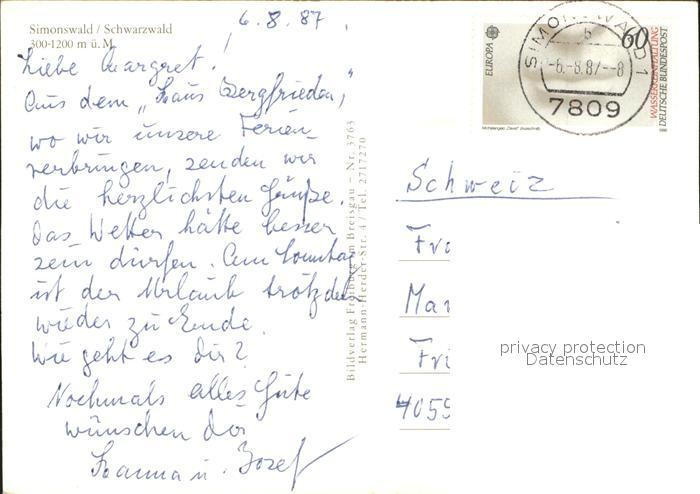 Simonswald / Schwarzwald
300-1200 m ü. M.
6.8.87.
Liebe Margret!
Aus dem „Haus Bergfrieden",
wo wir unsere Ferien
verbringen, senden wir
die herzlichsten Grüße.
Das Wetter hätte besser
sein dürfen. Am Sonntag
ist der Urlaub trotzdem
wieder zu Ende.
Wie geht es Dir?
Nochmals alles Gute
wünschen Dir
Hanna u. Josef
Bildverlag Freiburg im Breisgau – Nr. 3763
Hermann-Herder-Str. 4 / Tel. 2717270
EUROPA
60
WASSER-GESTALTUNG
DEUTSCHE BUNDESPOST
SIMONSWALD 1
b
-6.-8.87--8
7809
Schweiz
Fra
Mar
Fri
4059
privacy protection
Datenschutz